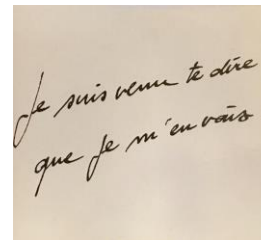 Je suis venu te dire
que Je m'en vais